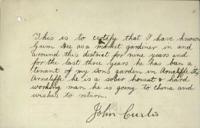 This is to certify that I have known
Gum Hee as a market gardener in and
around this district for nine years and
for the last three years he has been a
tenant of my sons garden in Arncliffe
he is a sober honest & hard
working man he is going to China and
wishes to return.
John Curtis